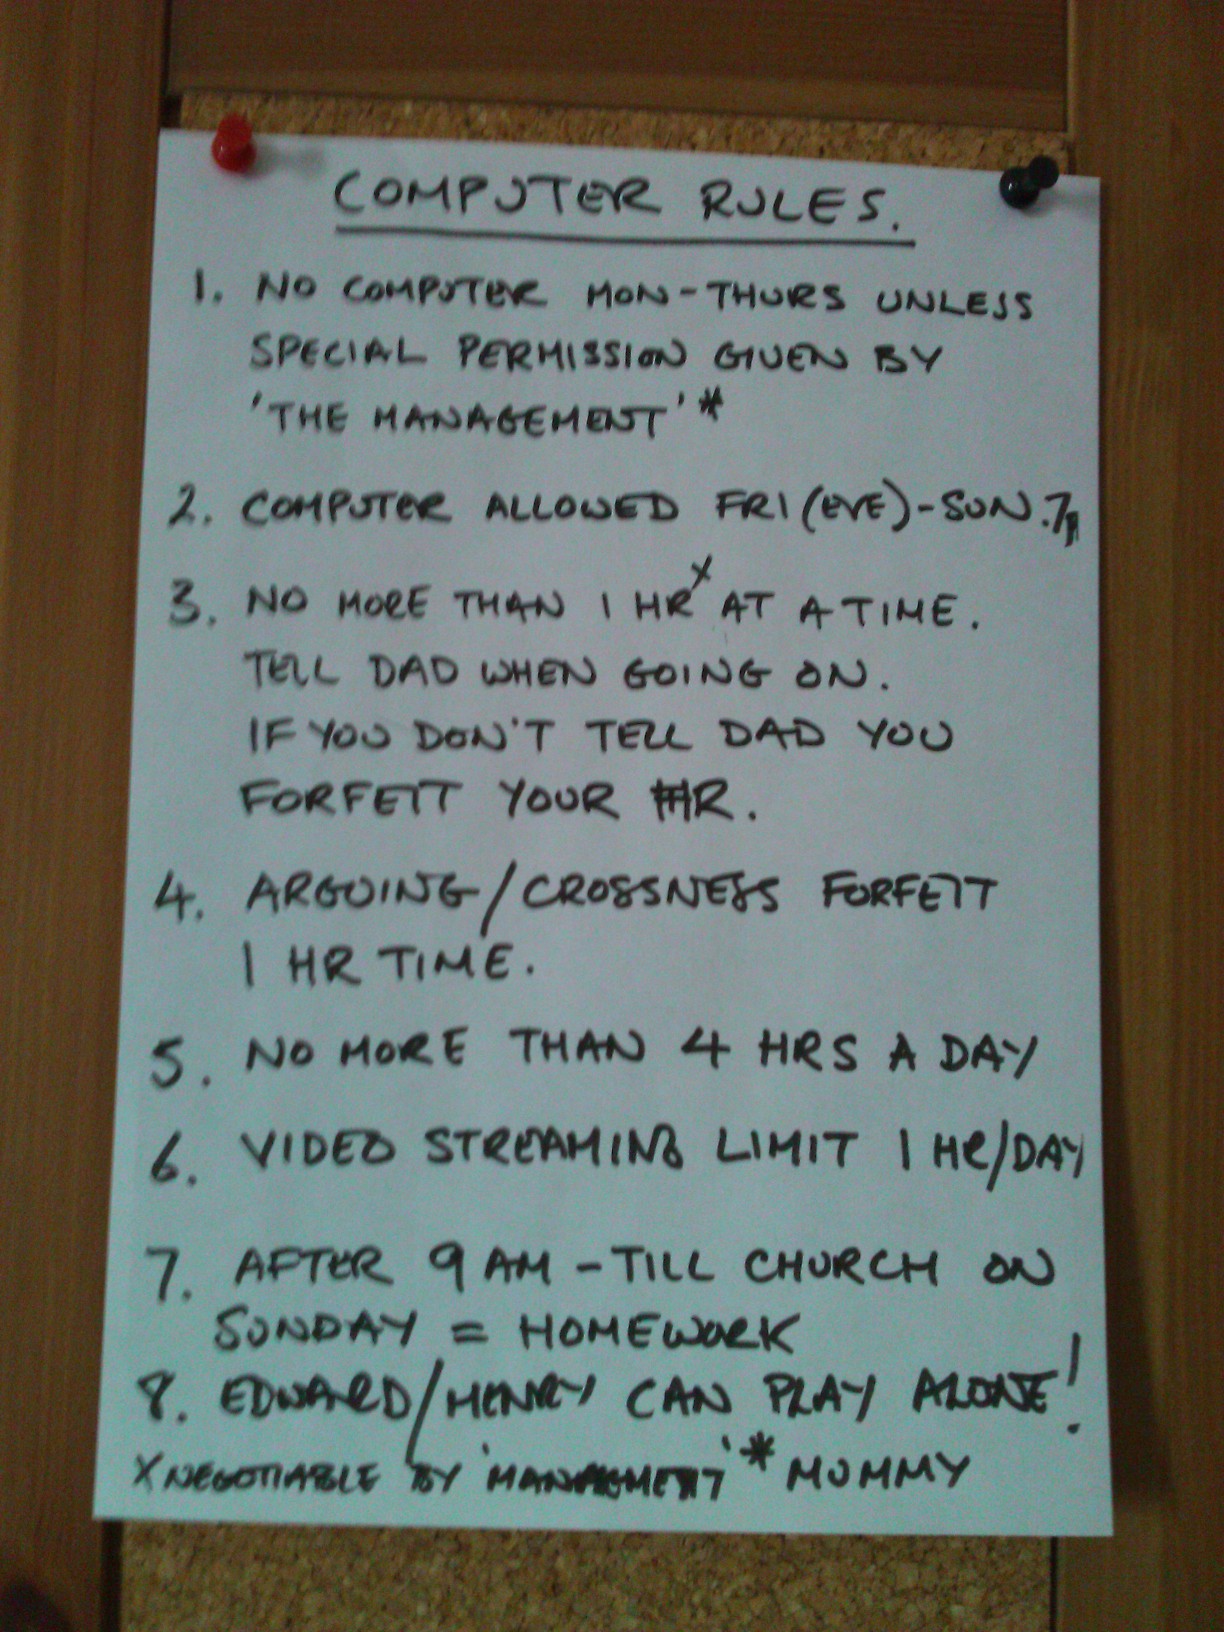 COMPUTER RULES.
1. NO COMPUTER MON-THURS UNLESS
SPECIAL PERMISSION GIVEN BY
'THE MANAGEMENT' *
2. COMPUTER ALLOWED FRI (EVE)-SUN.7
3. NO MORE THAN 1 HR X AT A TIME.
TELL DAD WHEN GOING ON.
IF YOU DON'T TELL DAD YOU
FORFEIT YOUR HR.
4. ARGUING/CROSSNESS FORFEIT
1 HR TIME.
5. NO MORE THAN 4 HRS A DAY
6. VIDEO STREAMING LIMIT 1 HR/DAY
7. AFTER 9 AM - TILL CHURCH ON
SUNDAY = HOMEWORK
8. EDWARD/HENRY CAN PLAY ALONE!
X NEGOTIABLE BY 'MANAGMENT' * MUMMY